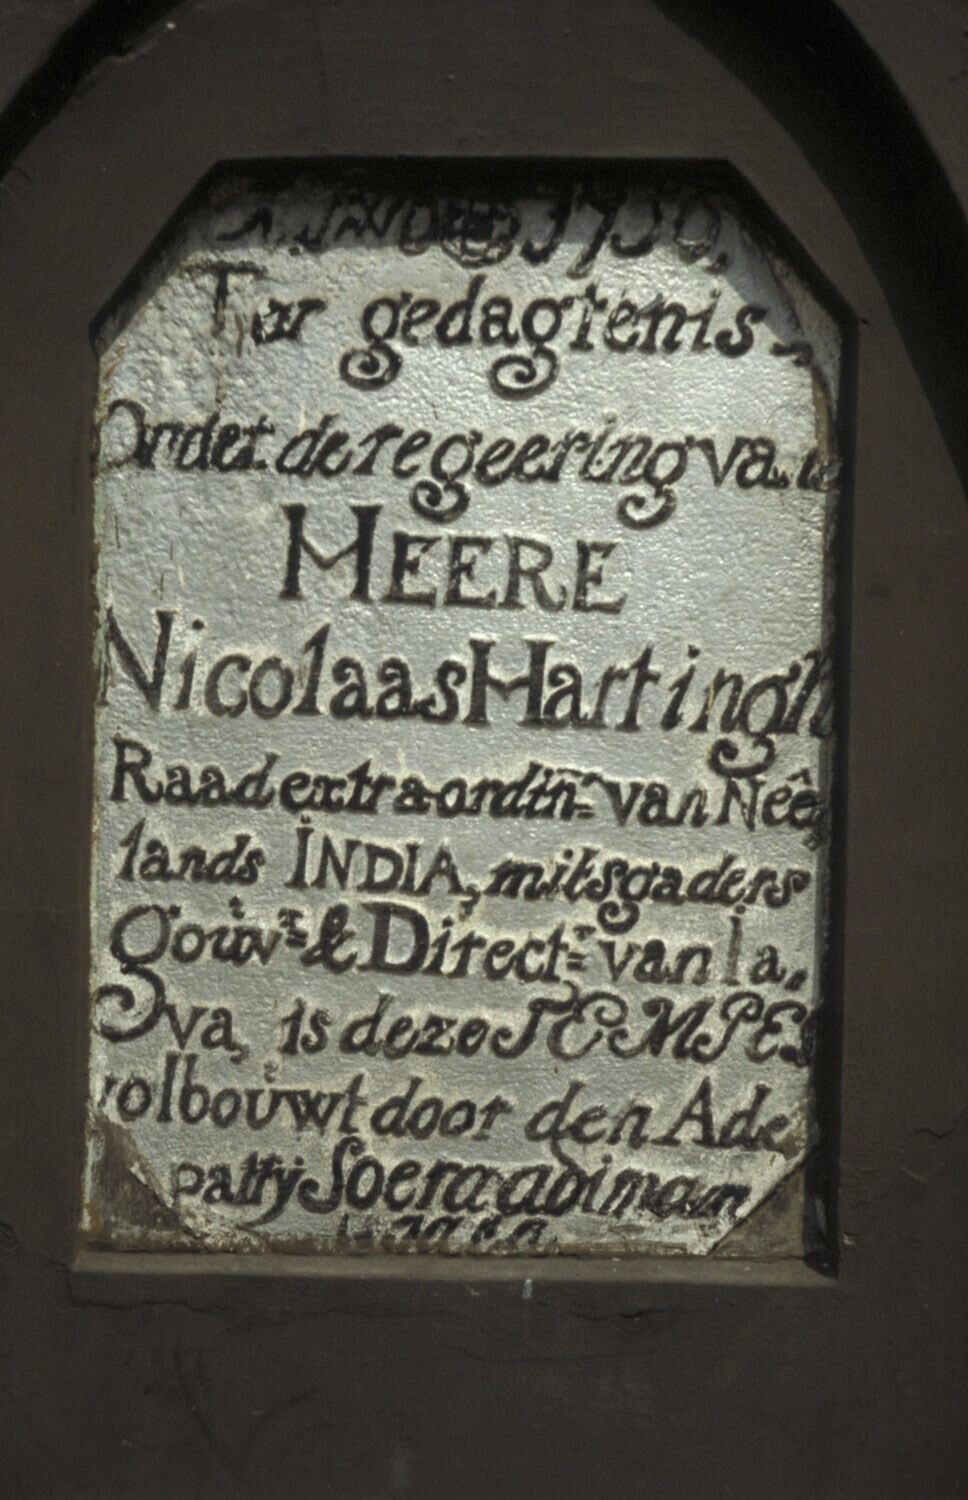 1756
Ter gedagtenis
Ondet de regeering van
MEERE
Nicolaas Hartingh
Raad extra-ordin.r van Neê
lands INDIA, mitsgaders
Gouv.r & Direct.r van Ia
va, is deze TEMPEL
volbouwt door den Ade
pattij Soeraadiman